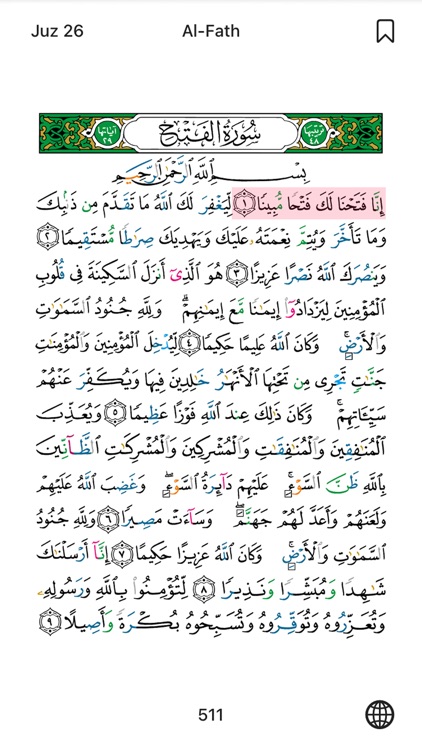 Juz 26
Al-Fath
ترتيبها ٤٨ سُورَةُ الفَتْحِ آياتها ٢٩
بِسْمِ ٱللَّهِ ٱلرَّحْمَٰنِ ٱلرَّحِيمِ
إِنَّا فَتَحْنَا لَكَ فَتْحًا مُّبِينًا ١ لِّيَغْفِرَ لَكَ ٱللَّهُ مَا تَقَدَّمَ مِن ذَنۢبِكَ
وَمَا تَأَخَّرَ وَيُتِمَّ نِعْمَتَهُۥ عَلَيْكَ وَيَهْدِيَكَ صِرَٰطًا مُّسْتَقِيمًا ٢
وَيَنصُرَكَ ٱللَّهُ نَصْرًا عَزِيزًا ٣ هُوَ ٱلَّذِىٓ أَنزَلَ ٱلسَّكِينَةَ فِى قُلُوبِ
ٱلْمُؤْمِنِينَ لِيَزْدَادُوٓا۟ إِيمَٰنًا مَّعَ إِيمَٰنِهِمْ ۗ وَلِلَّهِ جُنُودُ ٱلسَّمَٰوَٰتِ
وَٱلْأَرْضِ ۚ وَكَانَ ٱللَّهُ عَلِيمًا حَكِيمًا ٤ لِّيُدْخِلَ ٱلْمُؤْمِنِينَ وَٱلْمُؤْمِنَٰتِ
جَنَّٰتٍ تَجْرِى مِن تَحْتِهَا ٱلْأَنْهَٰرُ خَٰلِدِينَ فِيهَا وَيُكَفِّرَ عَنْهُمْ
سَيِّـَٔاتِهِمْ ۚ وَكَانَ ذَٰلِكَ عِندَ ٱللَّهِ فَوْزًا عَظِيمًا ٥ وَيُعَذِّبَ
ٱلْمُنَٰفِقِينَ وَٱلْمُنَٰفِقَٰتِ وَٱلْمُشْرِكِينَ وَٱلْمُشْرِكَٰتِ ٱلظَّآنِّينَ
بِٱللَّهِ ظَنَّ ٱلسَّوْءِ ۚ عَلَيْهِمْ دَآئِرَةُ ٱلسَّوْءِ ۖ وَغَضِبَ ٱللَّهُ عَلَيْهِمْ
وَلَعَنَهُمْ وَأَعَدَّ لَهُمْ جَهَنَّمَ ۖ وَسَآءَتْ مَصِيرًا ٦ وَلِلَّهِ جُنُودُ
ٱلسَّمَٰوَٰتِ وَٱلْأَرْضِ ۚ وَكَانَ ٱللَّهُ عَزِيزًا حَكِيمًا ٧ إِنَّآ أَرْسَلْنَٰكَ
شَٰهِدًا وَمُبَشِّرًا وَنَذِيرًا ٨ لِّتُؤْمِنُوا۟ بِٱللَّهِ وَرَسُولِهِۦ
وَتُعَزِّرُوهُ وَتُوَقِّرُوهُ وَتُسَبِّحُوهُ بُكْرَةً وَأَصِيلًا ٩
511